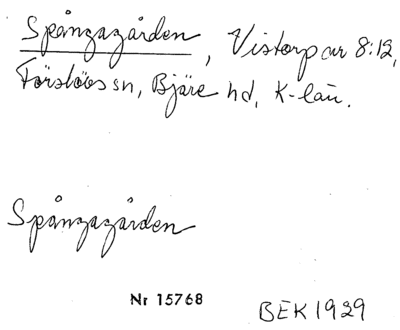 Spångagården, Vistorp ar 8:12,
Förslövs sn, Bjäre hd, K-län.
Spångagården
Nr 15768
BEK 1929